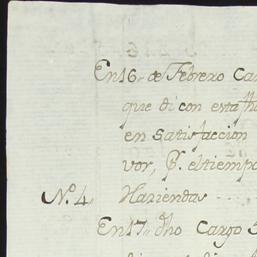 En 16,, de Febrero Car
que di con esta fha
en satisfaccion
vor, Pr. el tiempo
No. 4 Haziendas
En 17,, dho Cargo 5